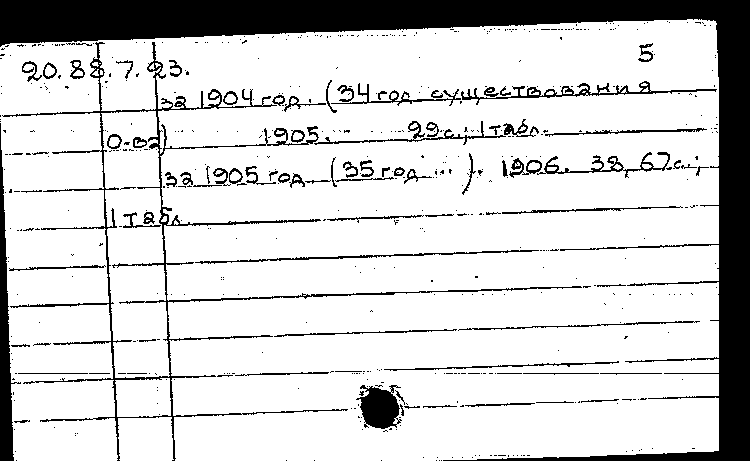 5
20.88.7.23.
за 1904 год. (34 год существования
о-ва) 1905. 29с.; 1 табл.
за 1905 год. (35 год ...). 1906. 38, 67с.;
1 табл.